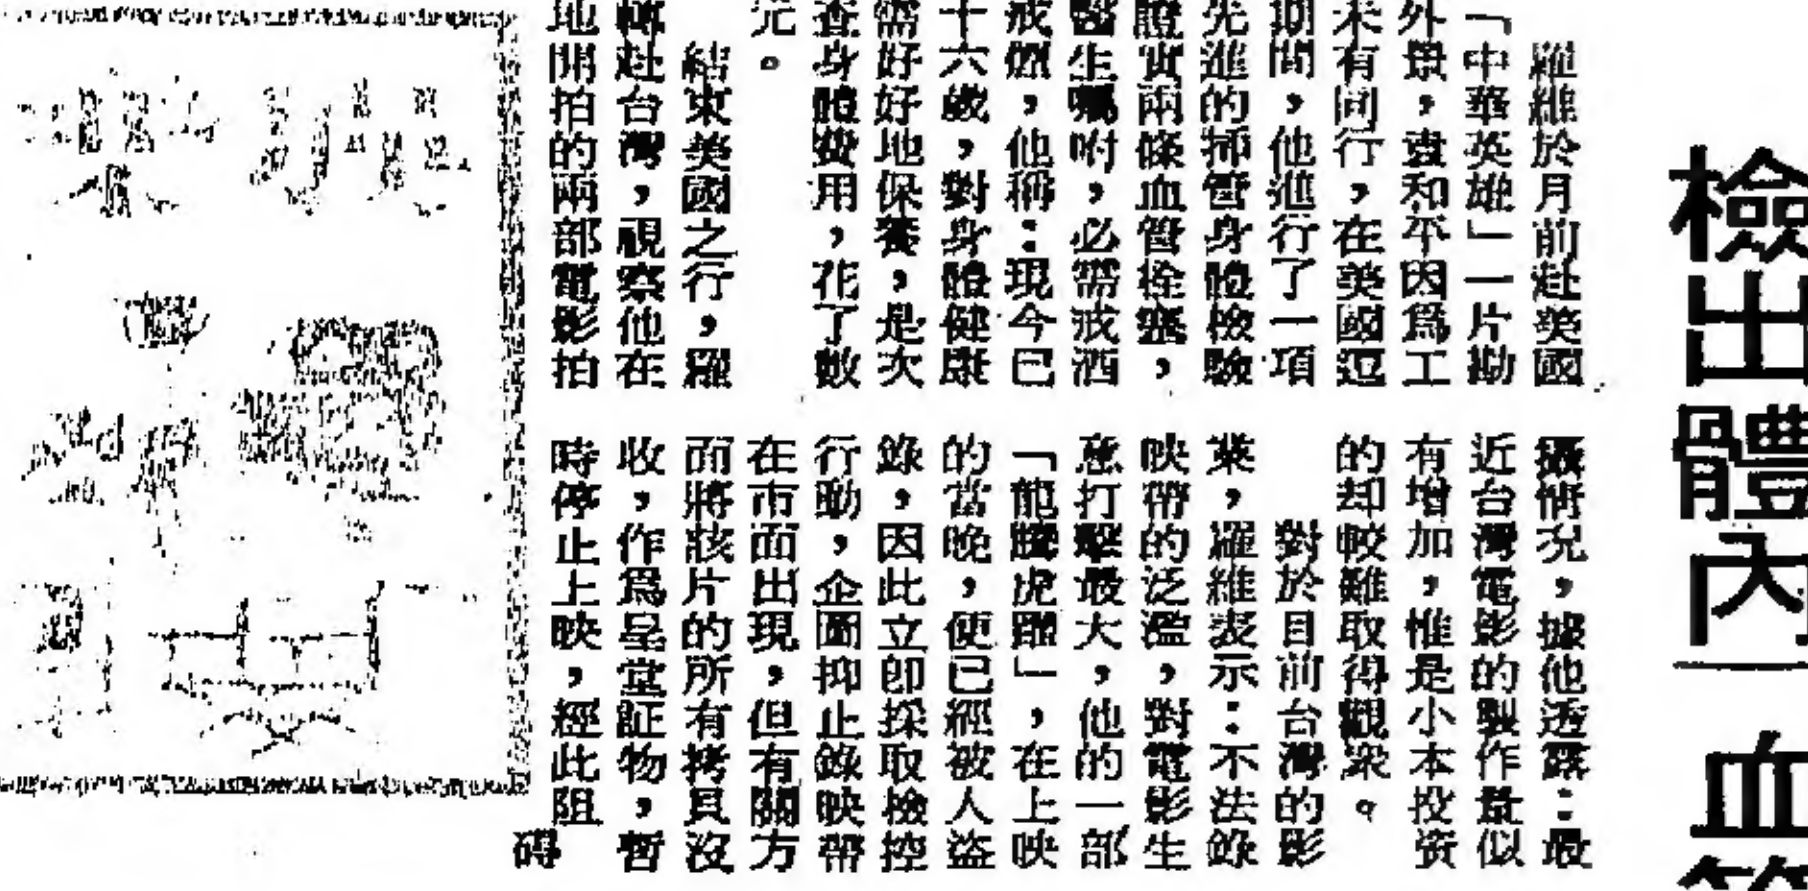 檢出體內一血
羅維於月前赴美國
「中華英雄」一片勘
外景，袁和平因爲工
未有同行，在美國逗
期間，他進行了一項
先進的插管身體檢驗
證實兩條血管栓塞，
醫生囑咐，必需戒酒
戒煙，他稱：現今已
十六歲，對身體健康
需好好地保養，是次
查身體費用，花了數
元。
結束美國之行，羅
轉赴台灣，視察他在
地開拍的兩部電影拍
攝情況，據他透露：最
近台灣電影的製作量似
有增加，惟是小本投資
的却較難取得觀衆。
對於目前台灣的影
業，羅維表示：不法錄
映帶的泛濫，對電影生
意打擊最大，他的一部
「龍騰虎躍」，在上映
的當晚，便已經被人盜
錄，因此立即採取檢控
行動，企圖抑止錄映帶
在市面出現，但有關方
面將該片的所有拷貝沒
收，作爲呈堂証物，暫
時停止上映，經此阻
碍